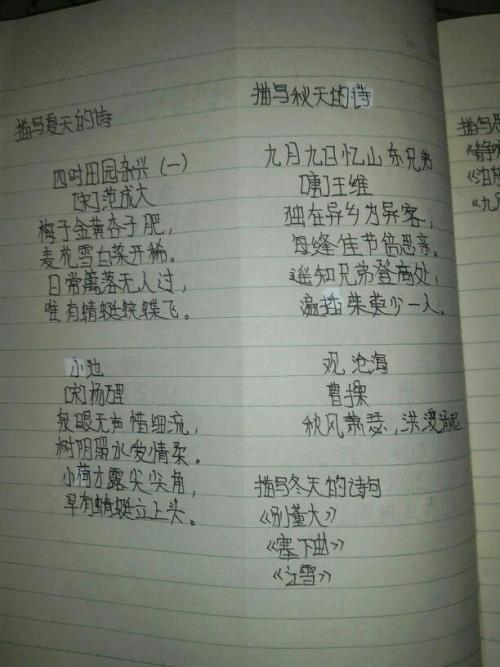 描写夏天的诗
四时田园杂兴(一)
[宋]范成大
梅子金黄杏子肥,
麦花雪白菜开稀。
日常篱落无人过,
唯有蜻蜓蛱蝶飞。
小池
[宋]杨
泉眼无声惜细流,
树阴照水爱情柔。
小荷才露尖尖角,
早有蜻蜓立上头。
描写秋天的诗
九月九日忆山东兄弟
[唐]王维
独在异乡为异客,
每逢佳节倍思亲。
遥知兄弟登高处,
遍插茱萸少一人。
观沧海
曹操
秋风萧瑟,洪波涌起
描写冬天的诗句
《别董大》
《塞下曲》
《江雪》
描写
《静
《泊
《九